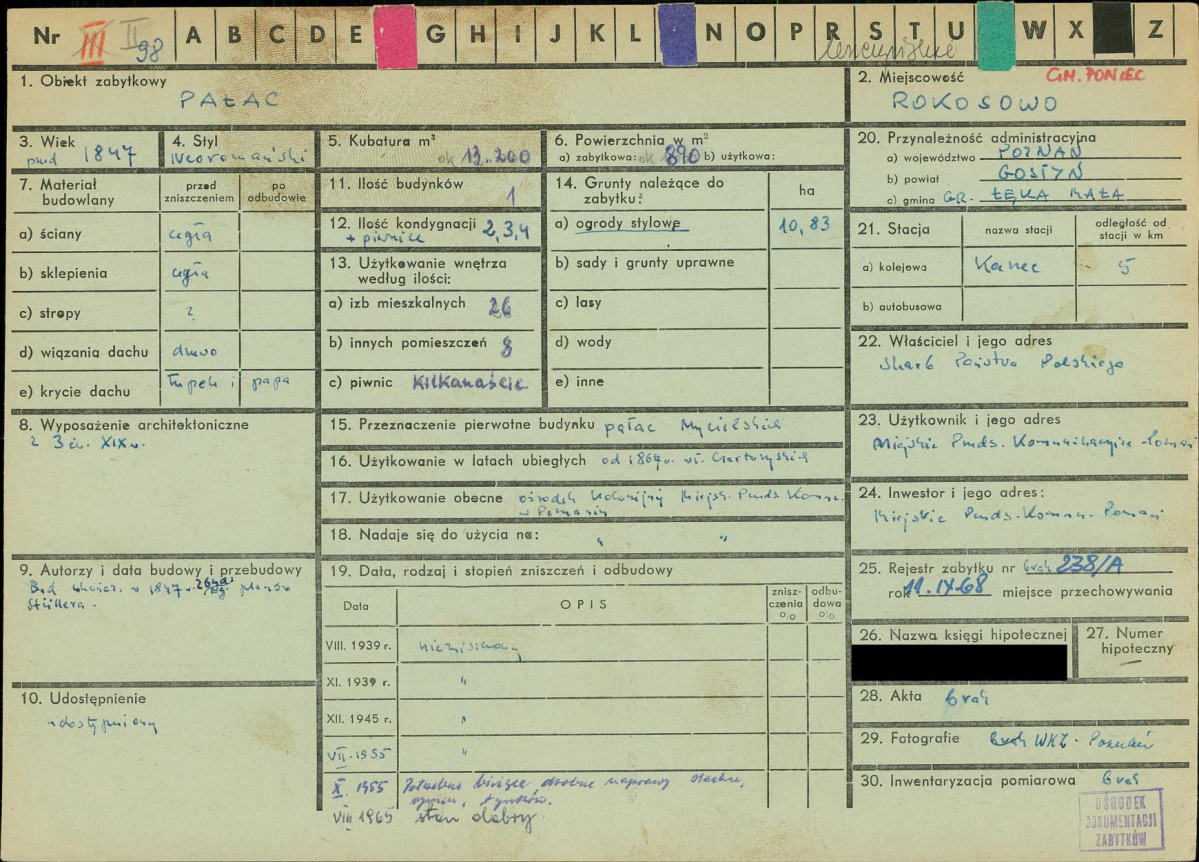 Nr III II 98 A B C D E G H I J K L N O P R S T U W X Z
1. Obiekt zabytkowy
PAŁAC
2. Miejscowość GM. PONIEC
ROKOSOWO
3. Wiek
przed 1847
4. Styl
Neoromański
5. Kubatura m³
ok 13.200
6. Powierzchnia w m²
a) zabytkowa: ok 890 b) użytkowa:
20. Przynależność administracyjna
a) województwo POZNAŃ
b) powiat GOSTYŃ
c) gmina GR. ŁĘKA MAŁA
7. Materiał budowlany
przed zniszczeniem
po odbudowie
a) ściany cegła
b) sklepienia cegła
c) stropy ?
d) wiązania dachu drewo
e) krycie dachu łupek i papa
11. Ilość budynków
1
12. Ilość kondygnacji 2,3,4
+ piwnice
13. Użytkowanie wnętrza
według ilości:
a) izb mieszkalnych 26
b) innych pomieszczeń 8
c) piwnic Kilkanaście
14. Grunty należące do
zabytku:
ha
a) ogrody stylowe 10,83
b) sady i grunty uprawne
c) lasy
d) wody
e) inne
21. Stacja
nazwa stacji
odległość od
stacji w km
a) kolejowa Kaniec 5
b) autobusowa
22. Właściciel i jego adres
Skarb Państwa Polskiego
8. Wyposażenie architektoniczne
z 3 ćw. XIX w.
15. Przeznaczenie pierwotne budynku pałac Mycielskich
16. Użytkowanie w latach ubiegłych od 1867 r. wł. Czartoryskich
17. Użytkowanie obecne ośrodek kolonijny Miejsk. Przds. Komun.
w Poznaniu
18. Nadaje się do użycia na: " "
23. Użytkownik i jego adres
Miejskie Przds. Komunikacyjne Poznań
24. Inwestor i jego adres:
Miejskie Przds. Komun. Poznań
9. Autorzy i data budowy i przebudowy
Bud. ukończ. w 1847 r. wg. planów
Stüllera.
19. Data, rodzaj i stopień zniszczeń i odbudowy
Data
OPIS
znisz-
czenia
%
odbu-
dowa
%
VIII. 1939 r. niezniszczony
XI. 1939 r. "
XII. 1945 r. "
VII. 1955 "
X. 1955 Potrzebne bieżące, drobne naprawy dachu,
rynien, tynków.
VIII 1965 stan dobry.
25. Rejestr zabytku nr brak 238/A
rok 11.IX.68 miejsce przechowywania
26. Nazwa księgi hipotecznej
27. Numer
hipoteczny
—
10. Udostępnienie
udostępniony
28. Akta brak
29. Fotografie brak WKZ - Poznań
30. Inwentaryzacja pomiarowa brak
OŚRODEK
DOKUMENTACJI
ZABYTKÓW